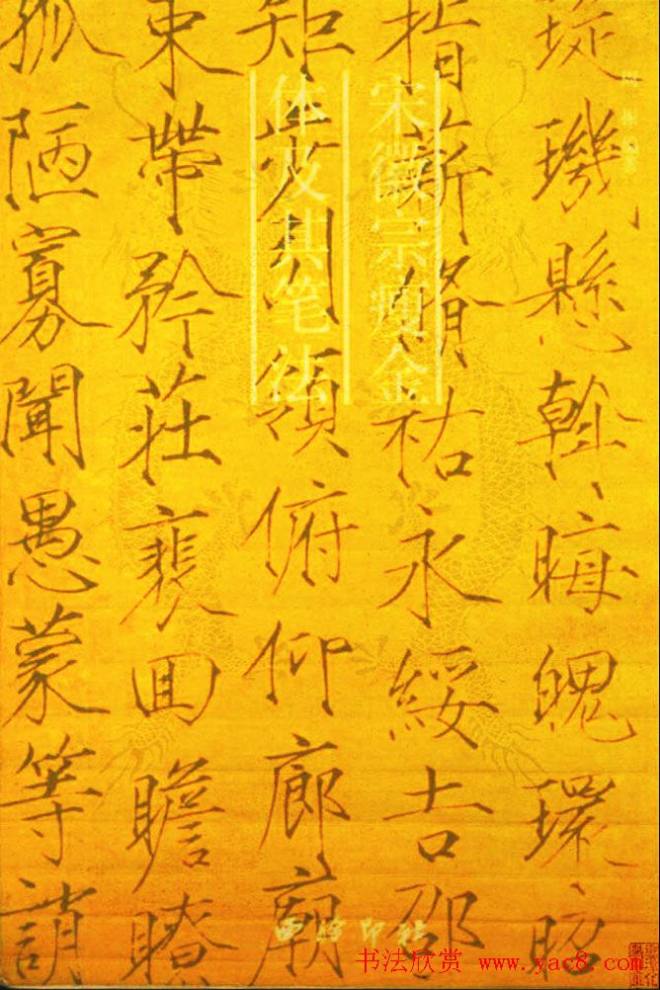 璇璣懸斡晦魄環照
指薪修祐永綏吉邵
矩步引領俯仰廊廟
束帶矜莊裴回瞻眺
孤陋寡聞愚蒙等誚
宋徽宗瘦金
体及其笔法
西泠印社
书法欣赏 www.yac8.com